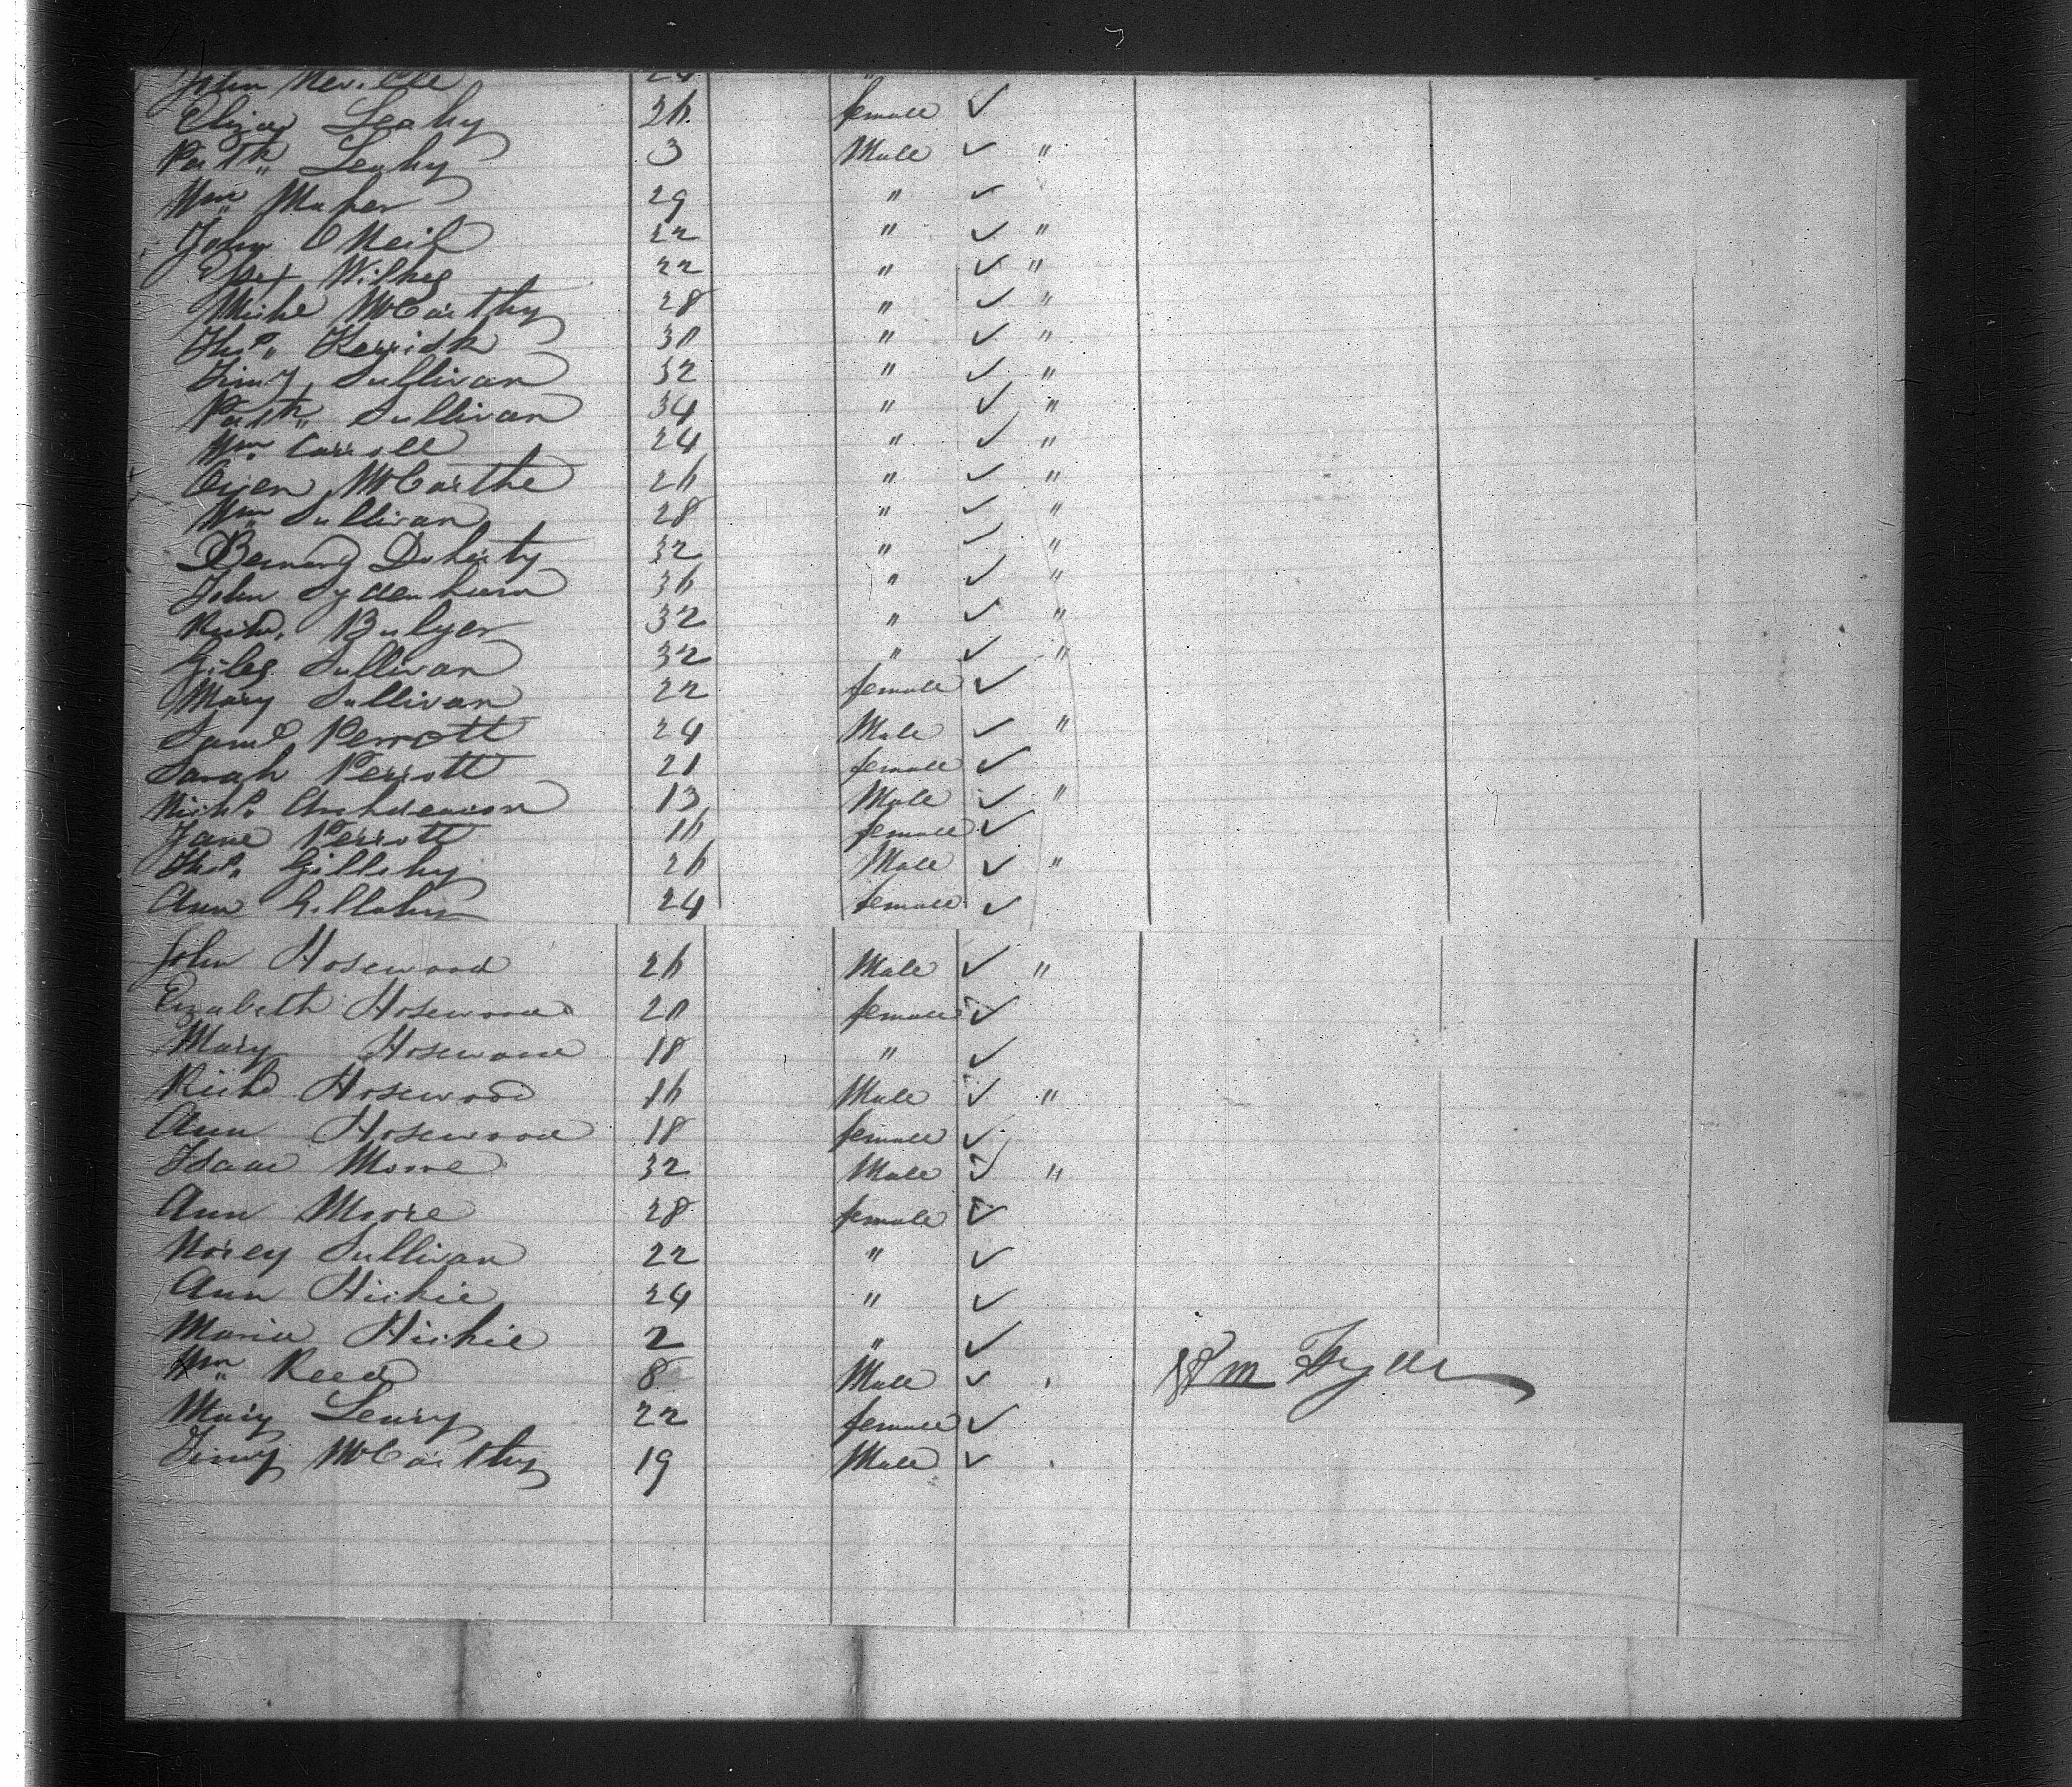 John Neville 24 "
Eliza Leahy 26 female ✓
Patk" Leahy 3 Male ✓ "
Wm" Maher 29 " ✓
John O Neil 22 " ✓ "
Wilkes 22 " ✓ "
Miche McCarthy 28 " ✓ "
Thos" Kerrisk 30 " ✓ "
Timy Sullivan 32 " ✓ "
Patk" Sullivan 34 " ✓ "
Wm. Carroll 24 " ✓ "
Owen McCarthe 26 " ✓ "
Wm" Sullivan 28 " ✓ "
Bernard Doherty 32 " ✓ "
John Sydenham 36 " ✓ "
Richd. Bulger 32 " ✓ "
Giles Sullivan 32 " ✓ "
Mary Sullivan 22 female ✓
Saml Perrott 24 Male ✓ "
Sarah Perrott 21 female ✓
Richd. 13 Male ✓ "
Jane Perrott 16 female ✓
Thos. Gillihy 26 Male ✓ "
Ann 24 female ✓
John Hosewood 26 Male ✓ "
Elizabeth Hosewood 20 female ✓
Mary Hosewood 18 " ✓
Richd Hosewood 16 Male ✓ "
Ann Hosewood 18 female ✓
Isaac Moore 32 Male ✓ "
Ann Moore 28 female ✓
Norey Sullivan 22 " ✓
Ann Hickie 24 " ✓
Maria Hickie 2 " ✓
Wm" Reed 8 Male ✓ Wm
Mary Leary 22 female ✓
Timy McCarthy 19 Male ✓